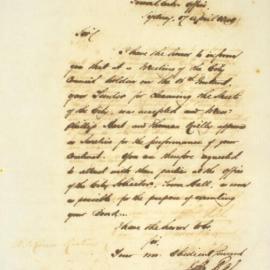 Town Clerk's Office,
Sydney, 17 April
Sir,
I have the honor to inform
you that at a Meeting of the City
Council holden on the 15th Instant,
your Tender for Cleansing the Streets
of the City, was accepted and Messrs
Phillip Mort and Thomas Reilly approved
as Sureties for the performance of your
Contract. You are therefore requested
to attend with these parties at the Office
of the City Solicitor, Town Hall, as soon
as possible for the purpose of executing
your Bond.
I have the honor to be,
Sir,
Your most Obedient Servant